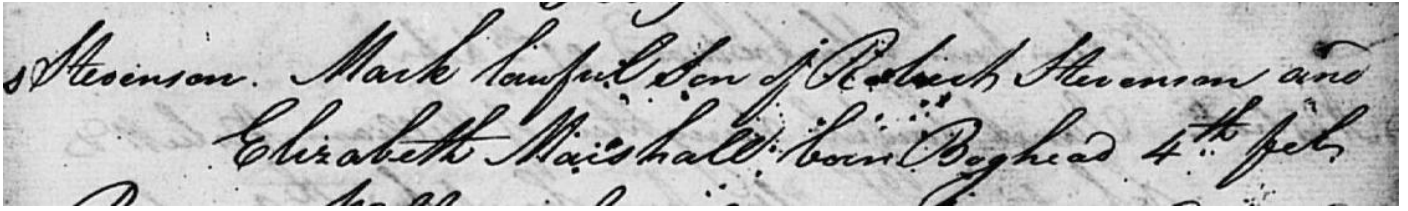 Stevenson. Mark lawful Son of Robert Stevenson and
Elizabeth Marshall born Boghead 4th feb